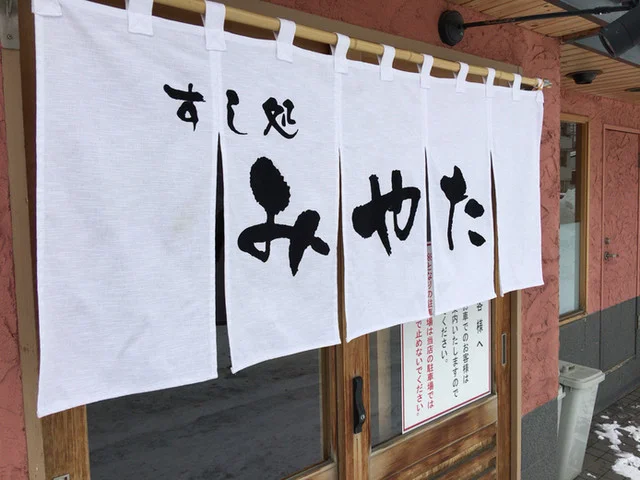 すし処
みやた
客様へ
お車でのお客様は
内いたしますので
ください。
となりの駐車場は当店の駐車場では
で止めないでください。